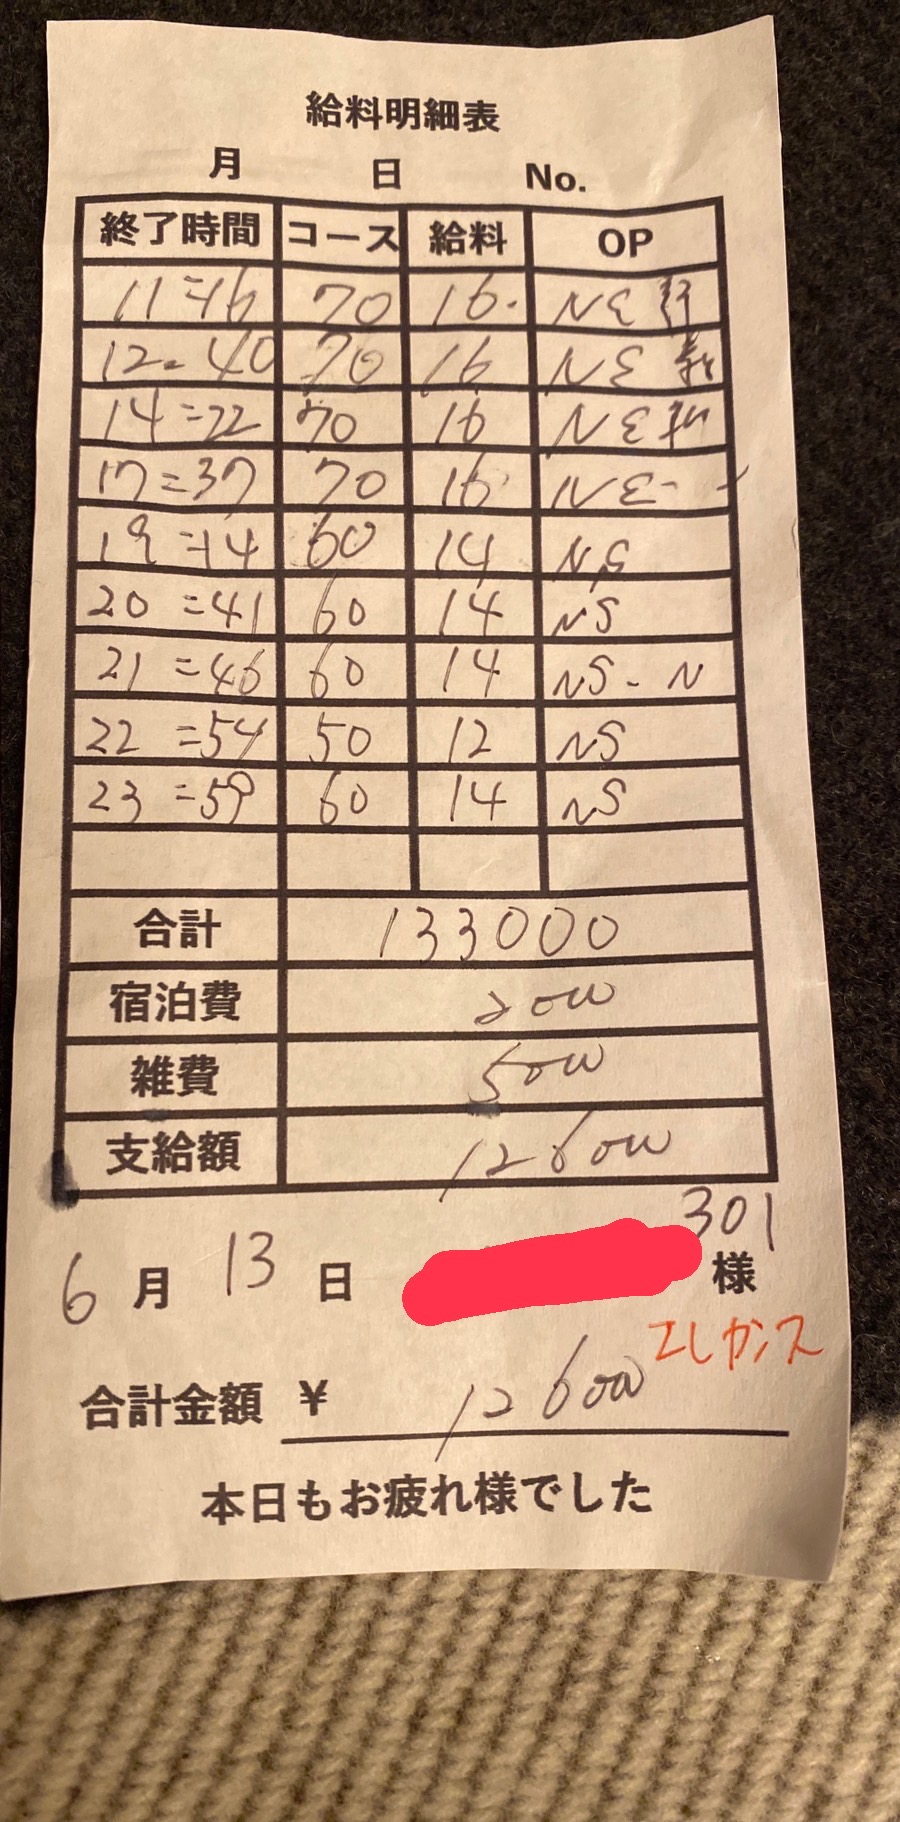 給料明細表
月 日 No.
終了時間 コース 給料 OP
11=16 70 16. NE
12=40 70 16 NE
14=22 70 16 NE
17=37 70 16 NE
19=14 60 14 NS
20=41 60 14 NS
21=46 60 14 NS - N
22=54 50 12 NS
23=59 60 14 NS
合計 133000
宿泊費 2000
雑費 5000
支給額 126000
301
6月 13日 様
エレガンス
合計金額 ¥ 126000
本日もお疲れ様でした